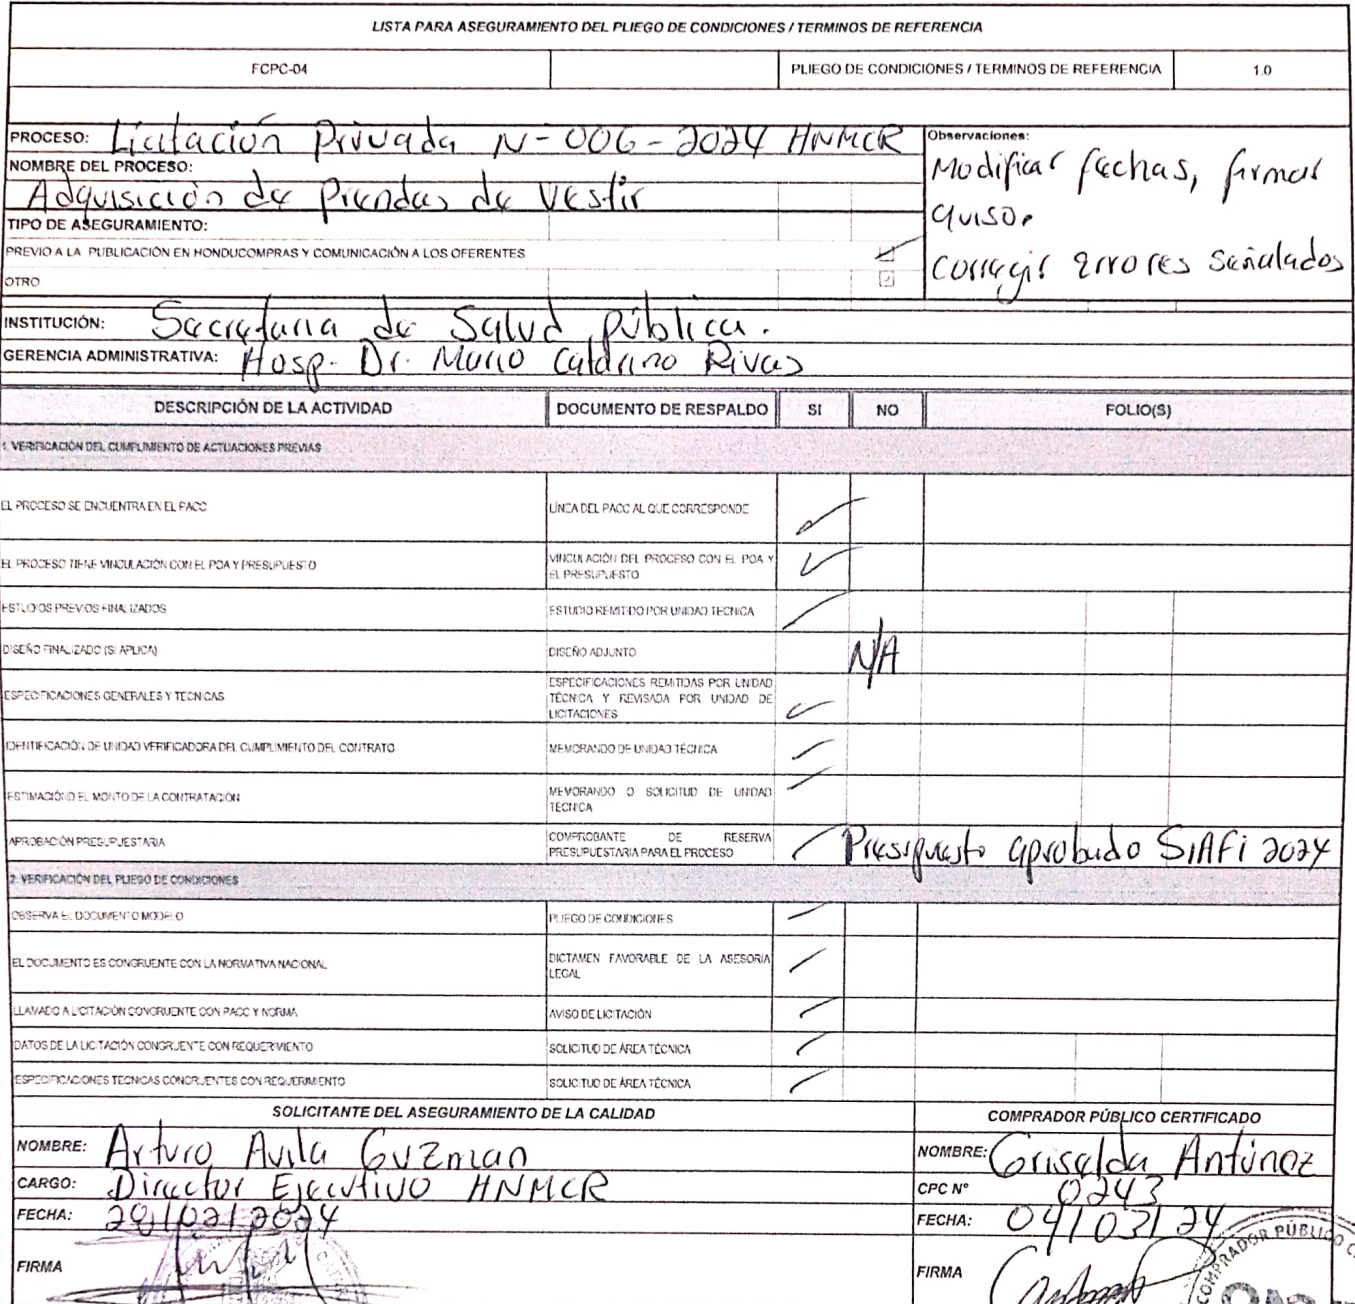 LISTA PARA ASEGURAMIENTO DEL PLIEGO DE CONDICIONES / TERMINOS DE REFERENCIA
FCPC-04 PLIEGO DE CONDICIONES / TERMINOS DE REFERENCIA 1.0
PROCESO: Licitación Privada N-006-2024 HNMCR
NOMBRE DEL PROCESO:
Adquisición de Prendas de Vestir
TIPO DE ASEGURAMIENTO:
PREVIO A LA PUBLICACIÓN EN HONDUCOMPRAS Y COMUNICACIÓN A LOS OFERENTES
OTRO
Observaciones:
Modificar fechas, firmar
aviso.
Corregir errores señalados
INSTITUCIÓN: Secretaria de Salud Pública.
GERENCIA ADMINISTRATIVA: Hosp. Dr. Mario Catarino Rivas
DESCRIPCIÓN DE LA ACTIVIDAD DOCUMENTO DE RESPALDO SI NO FOLIO(S)
1. VERIFICACIÓN DEL CUMPLIMIENTO DE ACTUACIONES PREVIAS
EL PROCESO SE ENCUENTRA EN EL PACC LÍNEA DEL PACC AL QUE CORRESPONDE
EL PROCESO TIENE VINCULACIÓN CON EL POA Y PRESUPUESTO VINCULACIÓN DEL PROCESO CON EL POA Y
EL PRESUPUESTO
ESTUDIOS PREVIOS FINALIZADOS ESTUDIO REMITIDO POR UNIDAD TECNICA
DISEÑO FINALIZADO (SI APLICA) DISEÑO ADJUNTO N/A
ESPECIFICACIONES GENERALES Y TECNICAS ESPECIFICACIONES REMITIDAS POR UNIDAD
TÉCNICA Y REVISADA POR UNIDAD DE
LICITACIONES
IDENTIFICACIÓN DE UNIDAD VERIFICADORA DEL CUMPLIMIENTO DEL CONTRATO MEMORANDO DE UNIDAD TÉCNICA
ESTIMACIÓND EL MONTO DE LA CONTRATACIÓN MEMORANDO O SOLICITUD DE UNIDAD
TÉCNICA
APROBACIÓN PRESUPUESTARIA COMPROBANTE DE RESERVA
PRESUPUESTARIA PARA EL PROCESO Presupuesto aprobado SIAFI 2024
2. VERIFICACIÓN DEL PLIEGO DE CONDICIONES
OBSERVA EL DOCUMENTO MODELO PLIEGO DE CONDICIONES
EL DOCUMENTO ES CONGRUENTE CON LA NORMATIVA NACIONAL DICTAMEN FAVORABLE DE LA ASESORIA
LEGAL
LLAMADO A LICITACIÓN CONGRUENTE CON PACC Y NORMA AVISO DE LICITACIÓN
DATOS DE LA LICITACIÓN CONGRUENTE CON REQUERIMIENTO SOLICITUD DE ÁREA TÉCNICA
ESPECIFICACIONES TECNICAS CONGRUENTES CON REQUERIMIENTO SOLICITUD DE ÁREA TÉCNICA
SOLICITANTE DEL ASEGURAMIENTO DE LA CALIDAD
NOMBRE: Arturo Avila Guzman
CARGO: Director Ejecutivo HNMCR
FECHA: 29/02/2024
FIRMA
COMPRADOR PÚBLICO CERTIFICADO
NOMBRE: Griselda Antúnez
CPC N° 0243
FECHA: 04/03/24
FIRMA
COMPRADOR PÚBLICO